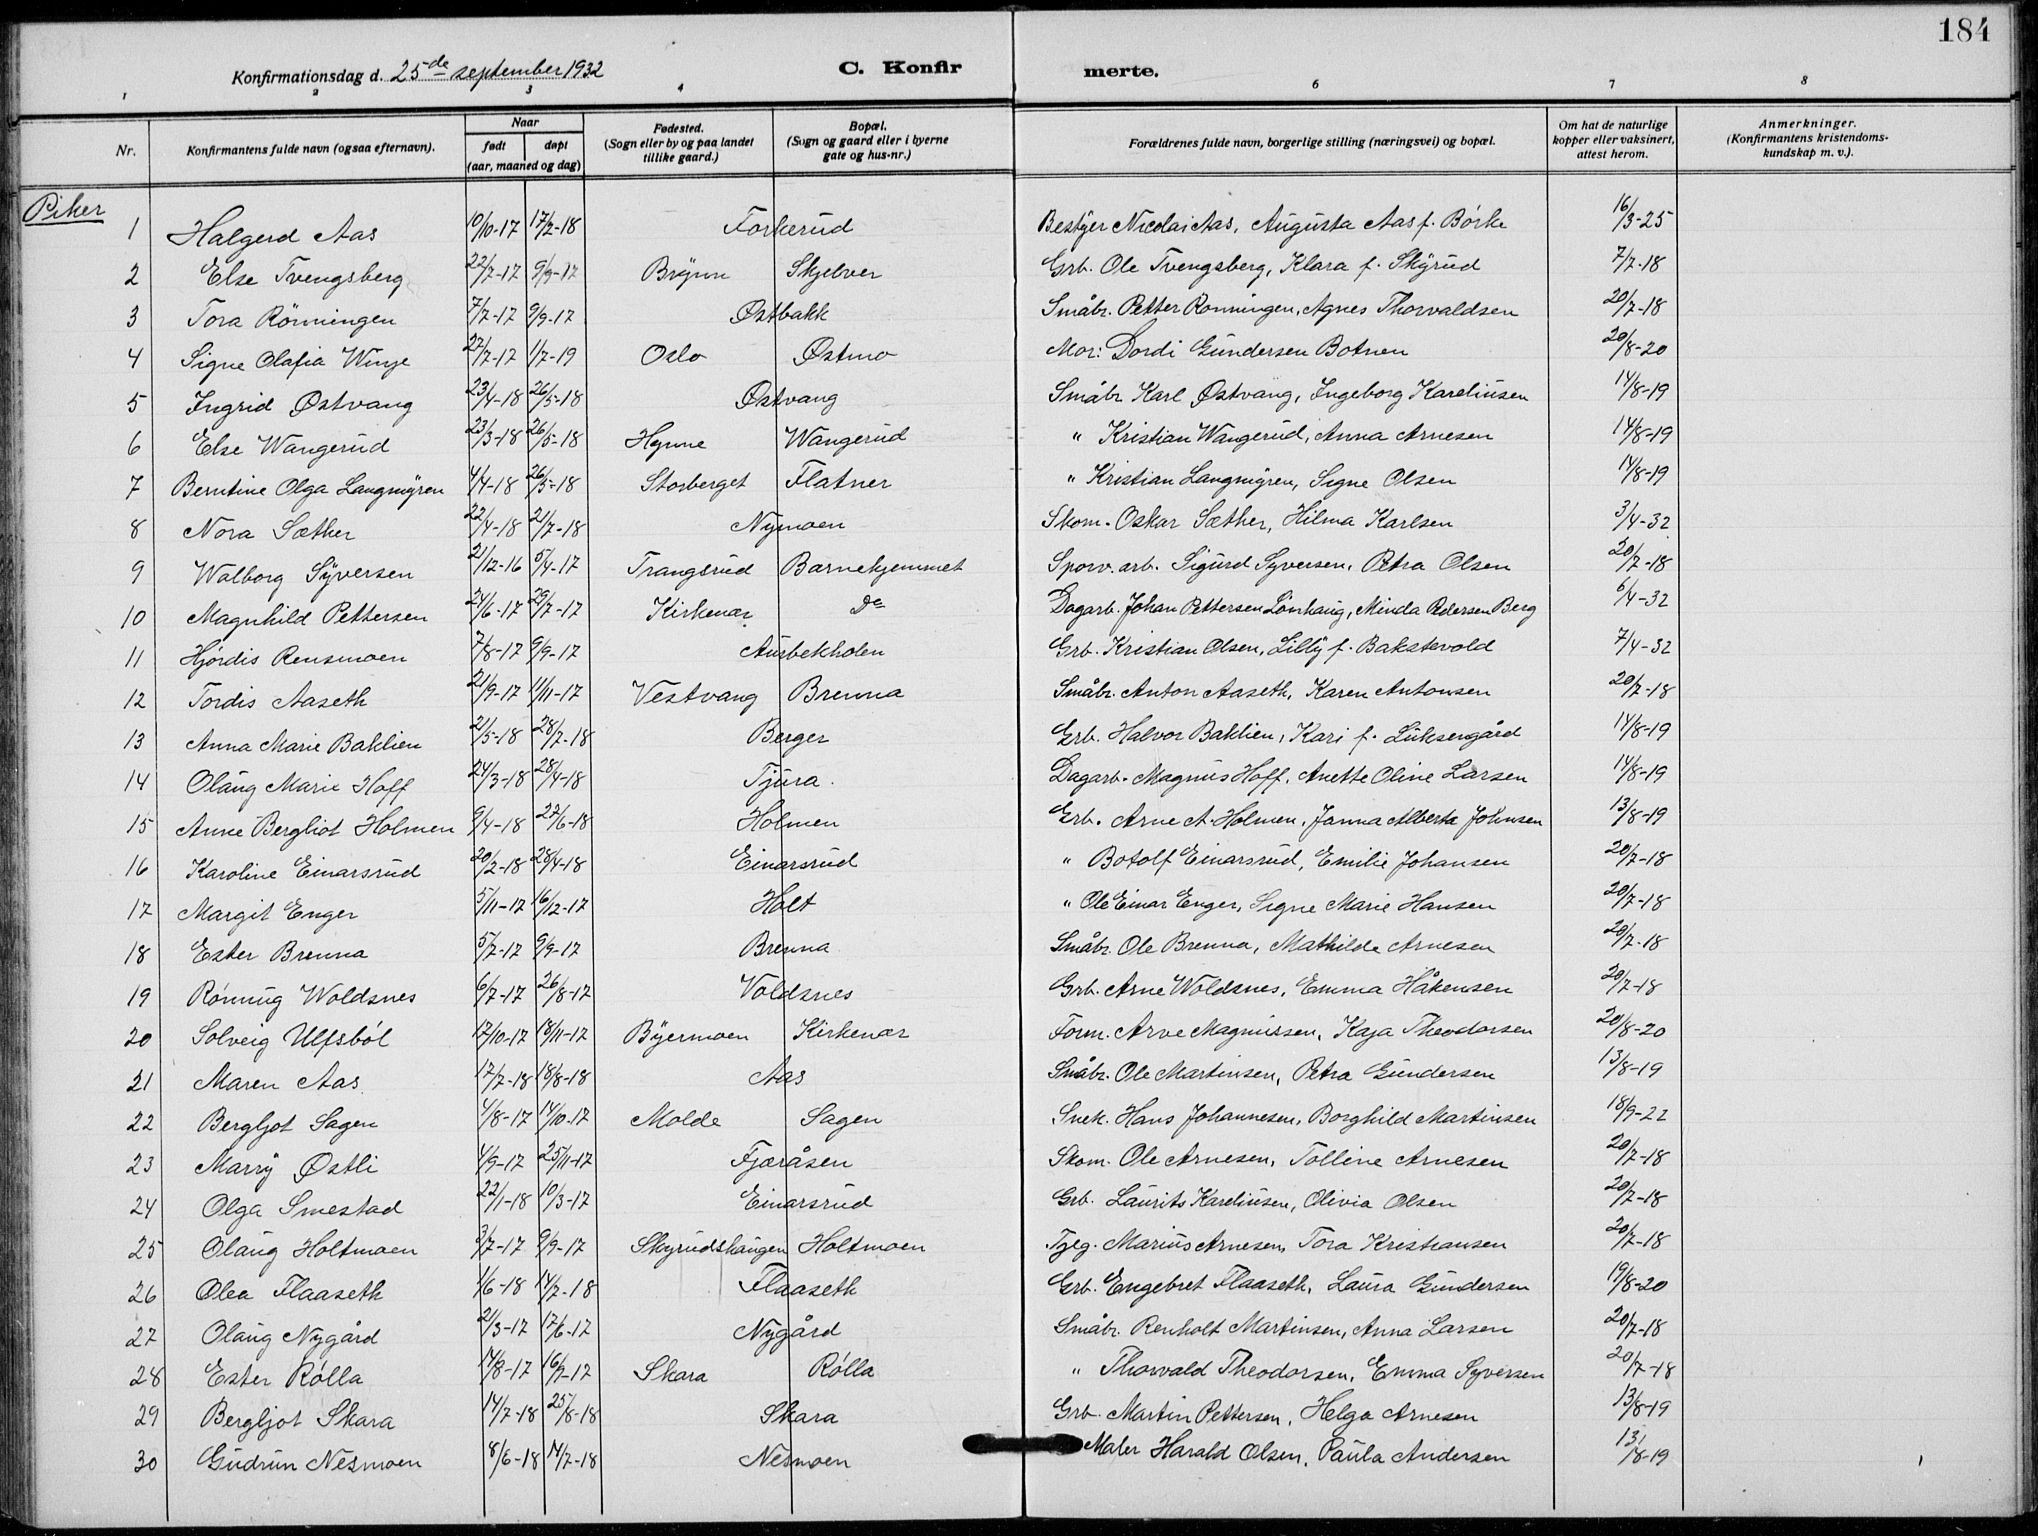 184
Konfirmationsdag d. 25de september 1932 C. Konfirmerte.
1 2 3 4 6 7 8
Nr. Konfirmantens fulde navn (ogsaa efternavn). Naar født døpt (aar, maaned og dag) Fødested. (Sogn eller by og paa landet tillike gaard.) Bopæl. (Sogn og gaard eller i byerne gate og hus-nr.) Forældrenes fulde navn, borgerlige stilling (næringsvei) og bopæl. Om hat de naturlige kopper eller vaksinert, attest herom. Anmerkninger. (Konfirmantens kristendoms-kundskap m. v.).
Piker
1 Halgerd Aas 10/10-17 17/2-18 Forkerud Bestyer Nicolai Aas, Augusta Aas f. Börke 16/3-25
2 Else Tvengsberg 22/7-17 9/9-17 Brynn Skjelver Grb. Ole Tvengsberg, Klara f. Skyrud 7/7-18
3 Tora Rönningen 7/7-17 9/9-17 Østbakk Småbr. Petter Ronningen, Agnes Thorvaldsen 20/7-18
4 Signe Olafia Winje 22/7-17 1/7-19 Oslo Østmo Mor: Dordi Gundersen Botnen 20/8-20
5 Ingrid Østvang 23/4-18 26/5-18 Østvang Småbr. Karl Østvang, Ingeborg Kareliusen 14/8-19
6 Else Wangerud 23/3-18 26/5-18 Hynne Wangerud " Kristian Wangerud, Anna Arnesen 14/8-19
7 Berntine Olga Langmyren 4/4-18 26/5-18 Storberget Flatner " Kristian Langmyren, Signe Olsen 14/8-19
8 Nora Sæther 22/4-18 21/7-18 Nymoen Skom. Oskar Sæther, Hilma Karlsen 3/4-32
9 Walborg Syversen 21/12-16 5/4-17 Trangsrud Barnehjemmet Sporv. arb. Sigurd Syversen, Petra Olsen 20/7-18
10 Magnhild Pettersen 24/6-17 29/7-17 Kirkenær Do Dagarb. Johan Pettersen Lönhaug, Minda Pedersen Berg 6/4-32
11 Hjördis Rensmoen 7/8-17 9/9-17 Aurbekholen Grb. Kristian Olsen, Lilly f. Bakstevold 7/4-32
12 Tordis Aaseth 21/9-17 11/11-17 Vestvang Brenna Småbr. Anton Aaseth, Karen Antonsen 20/7-18
13 Anna Marie Baklien 21/5-18 28/7-18 Berger Grb. Halvor Baklien, Kari f. Luksengård 14/8-19
14 Olaug Marie Hoff 24/3-18 28/4-18 Tjura. Dagarb. Magnus Hoff, Anette Oline Larsen 14/8-19
15 Anne Bergliot Holmen 9/4-18 22/6-18 Holmen Grb. Arne A. Holmen, Janna Alberta Johnsen 13/8-19
16 Karoline Einarsrud 20/2-18 28/4-18 Einarsrud " Botolf Einarsrud, Emilie Johansen 20/7-18
17 Margit Enger 5/11-17 16/12-17 Holt " Ole Einar Enger, Signe Marie Hansen 20/7-18
18 Ester Brenna 5/7-17 9/9-17 Brenna Småbr. Ole Brenna, Mathilde Arnesen 20/7-18
19 Rönnug Woldsnes 6/7-17 26/8-17 Voldsnes Grb. Arne Woldsnes, Emma Håkensen 20/7-18
20 Solveig Ulfsböl 17/10-17 18/11-17 Byermoen Kirkenær Form. Arve Magnussen, Kaja Theodorsen 20/8-20
21 Maren Aas 17/7-18 18/8-18 Aas Småbr. Ole Martinsen, Petra Gundersen 13/8-19
22 Bergljot Sagen 4/8-17 14/10-17 Molde Sagen Snek. Hans Johannesen, Borghild Martinsen 18/9-22
23 Marry Østli 4/9-17 25/11-17 Fjæråsen Skom. Ole Arnesen, Tolline Arnesen 20/7-18
24 Olga Smestad 22/1-18 10/3-17 Einarsrud Grb. Laurits Kareliusen, Olivia Olsen 20/7-18
25 Olaug Holtmoen 3/7-17 9/9-17 Skyrudshaugen Holtmoen Tjeg. Marius Arnesen, Tora Kristiansen 20/7-18
26 Olea Flaaseth 1/6-18 14/7-18 Flaaseth Grb. Engebret Flaaseth, Laura Gundersen 19/8-20
27 Olaug Nygård 21/3-17 17/6-17 Nygård Småbr. Renholt Martinsen, Anna Larsen 20/7-18
28 Ester Rölla 14/8-17 16/9-17 Skara Rölla " Thorvald Theodorsen, Emma Syversen 20/7-18
29 Bergljot Skara 14/7-18 25/8-18 Skara Grb. Martin Pettersen, Helga Arnesen 13/8-19
30 Gudrun Nesmoen 8/6-18 14/7-18 Nesmoen Maler Harald Olsen, Paula Andersen 13/8-19